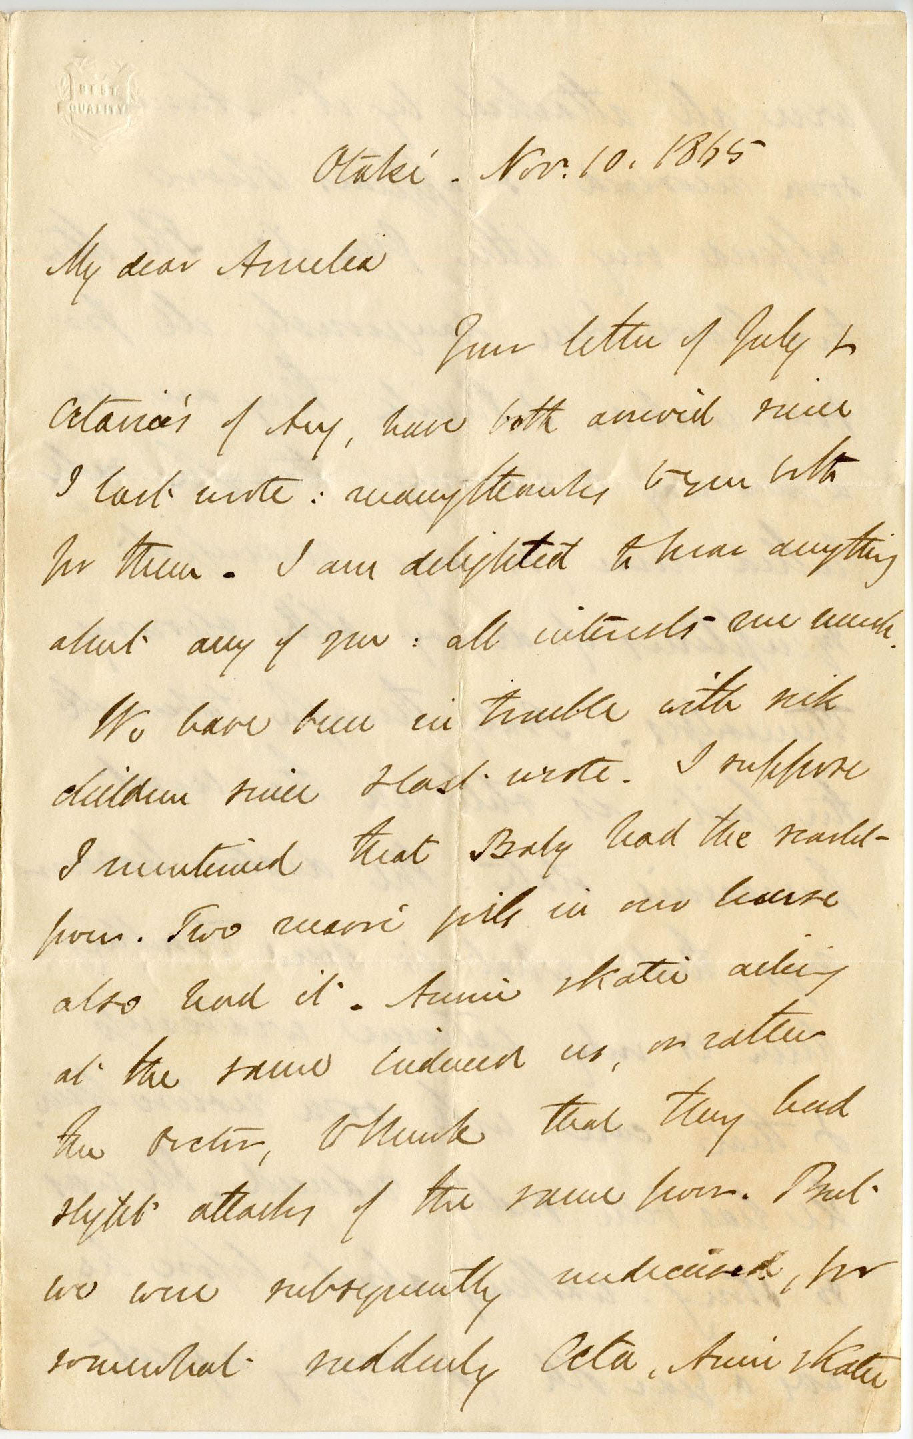 BEST
QUALITY
Otaki. Nov. 10. 1865
My dear Amelia
Your letter of July &
Octavia's of Aug, have both arrived since
I last wrote: many thanks to you both
for them. I am delighted to hear anything
about any of you: all interests me much.
We have been in trouble with sick
children since I last wrote. I suppose
I mentioned that Baby had the scarlet-
fever. Two maori girls in our house
also had it. Annie & Katie ailing
at the same induced us, or rather
the Doctor, to think that they had
slight attacks of the same fever. But
we were subsequently undeceived, for
somewhat suddenly Octa, Annie & Katie